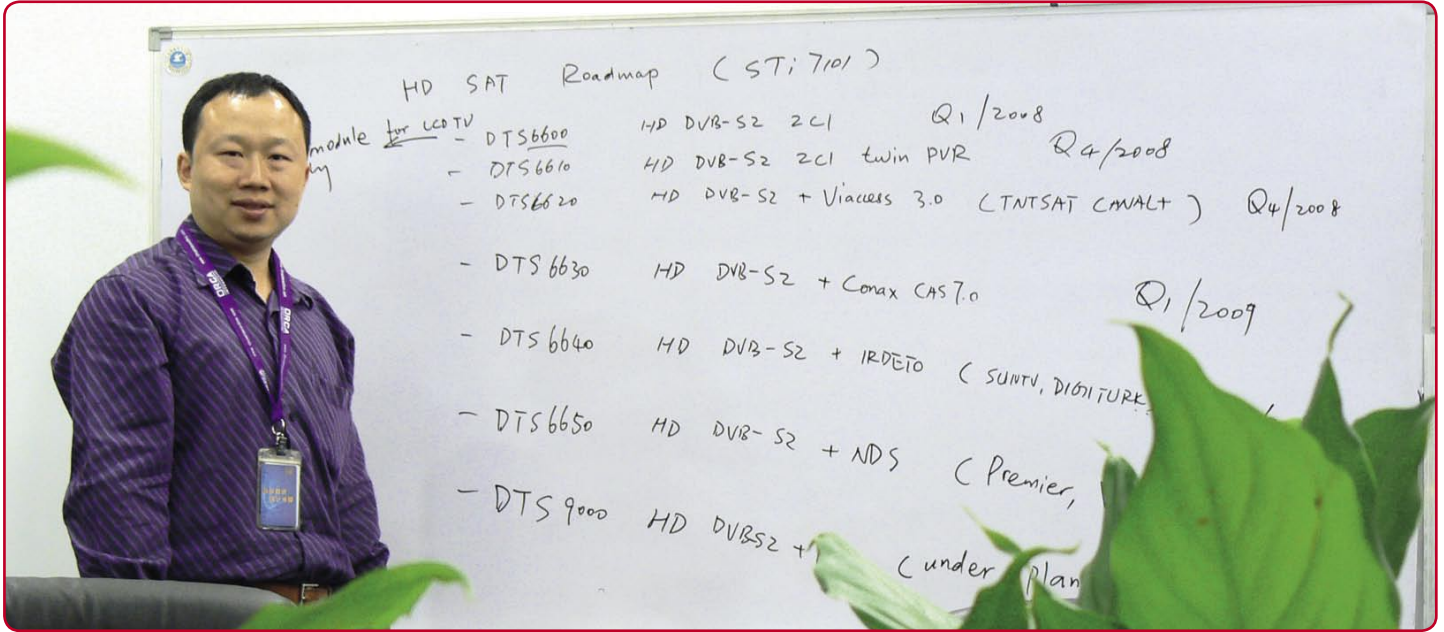 HD SAT Roadmap (STi7101)
module for LCDTV - DTS6600 HD DVB-S2 2CI Q1/2008
- DTS6610 HD DVB-S2 2CI twin PVR Q4/2008
- DTS6620 HD DVB-S2 + Viaccess 3.0 (TNTSAT CANAL+) Q4/2008
- DTS6630 HD DVB-S2 + Conax CAS7.0 Q1/2009
- DTS6640 HD DVB-S2 + IRDETO (SUNTV, DIGITURK
- DTS6650 HD DVB-S2 + NDS (Premier,
- DTS9000 HD DVBS2 + (under plan
ORCA
ORCA